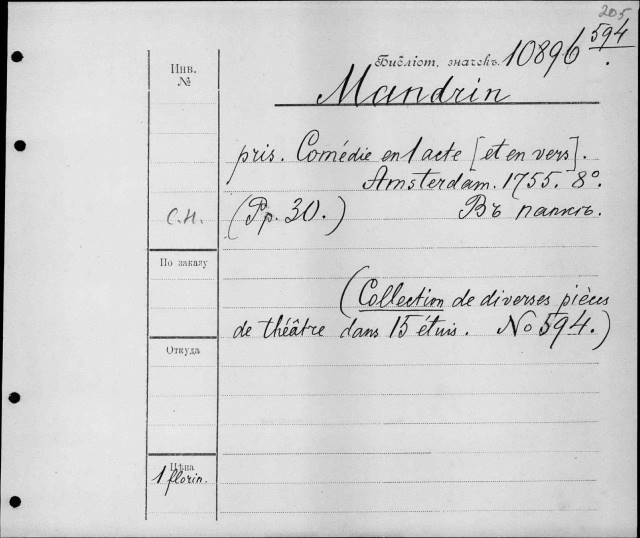 205
Библіот. значекъ. 10896 594.
Инв. №
Mandrin
pris. Comédie en 1 acte [et en vers].
Amsterdam. 1755. 8°.
С.Н. (Pp. 30.) Въ папкѣ.
По заказу
(Collection de diverses pièces
de théâtre dans 15 étuis. No 594.)
Откуда
Цѣна
1 florin.